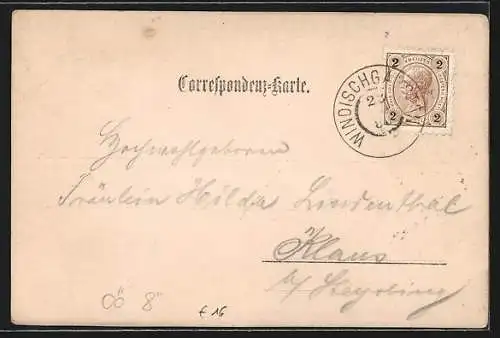 Correspondenz-Karte.
2
2
2
2
WINDISCHGA
Hochwohlgeboren
Fräulein Hilda Lindenthal
Klaus
a/ Steyrling
OÖ 8
€ 16